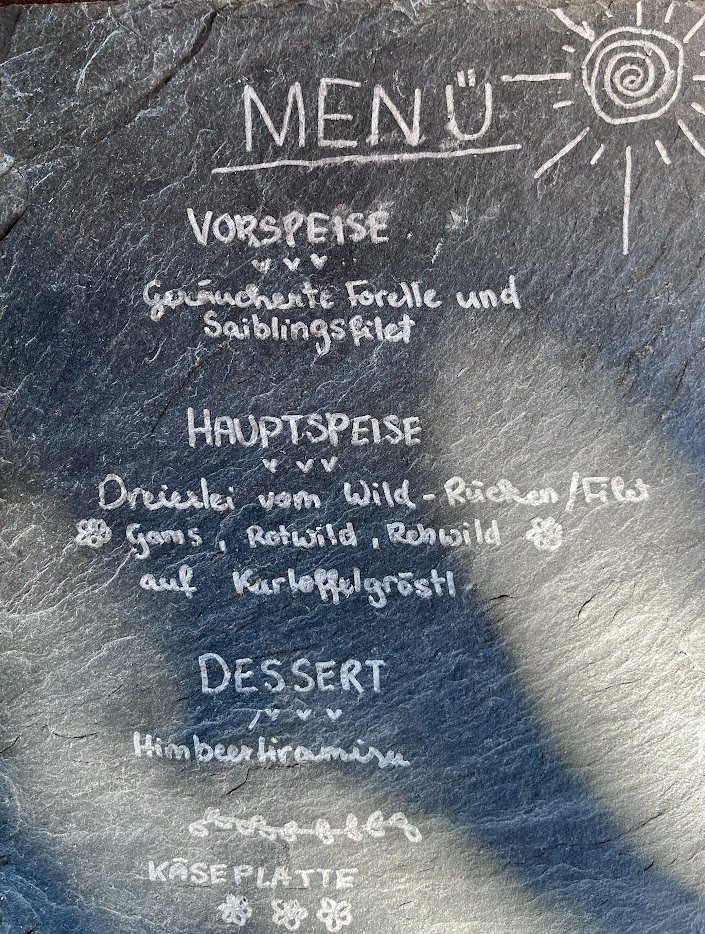 MENÜ
VORSPEISE
Geräucherte Forelle und
Saiblingsfilet
HAUPTSPEISE
Dreierlei vom Wild-Rücken/Filet
Gams, Rotwild, Rehwild
auf Kartoffelgröstl
DESSERT
Himbeertiramisu
KÄSEPLATTE